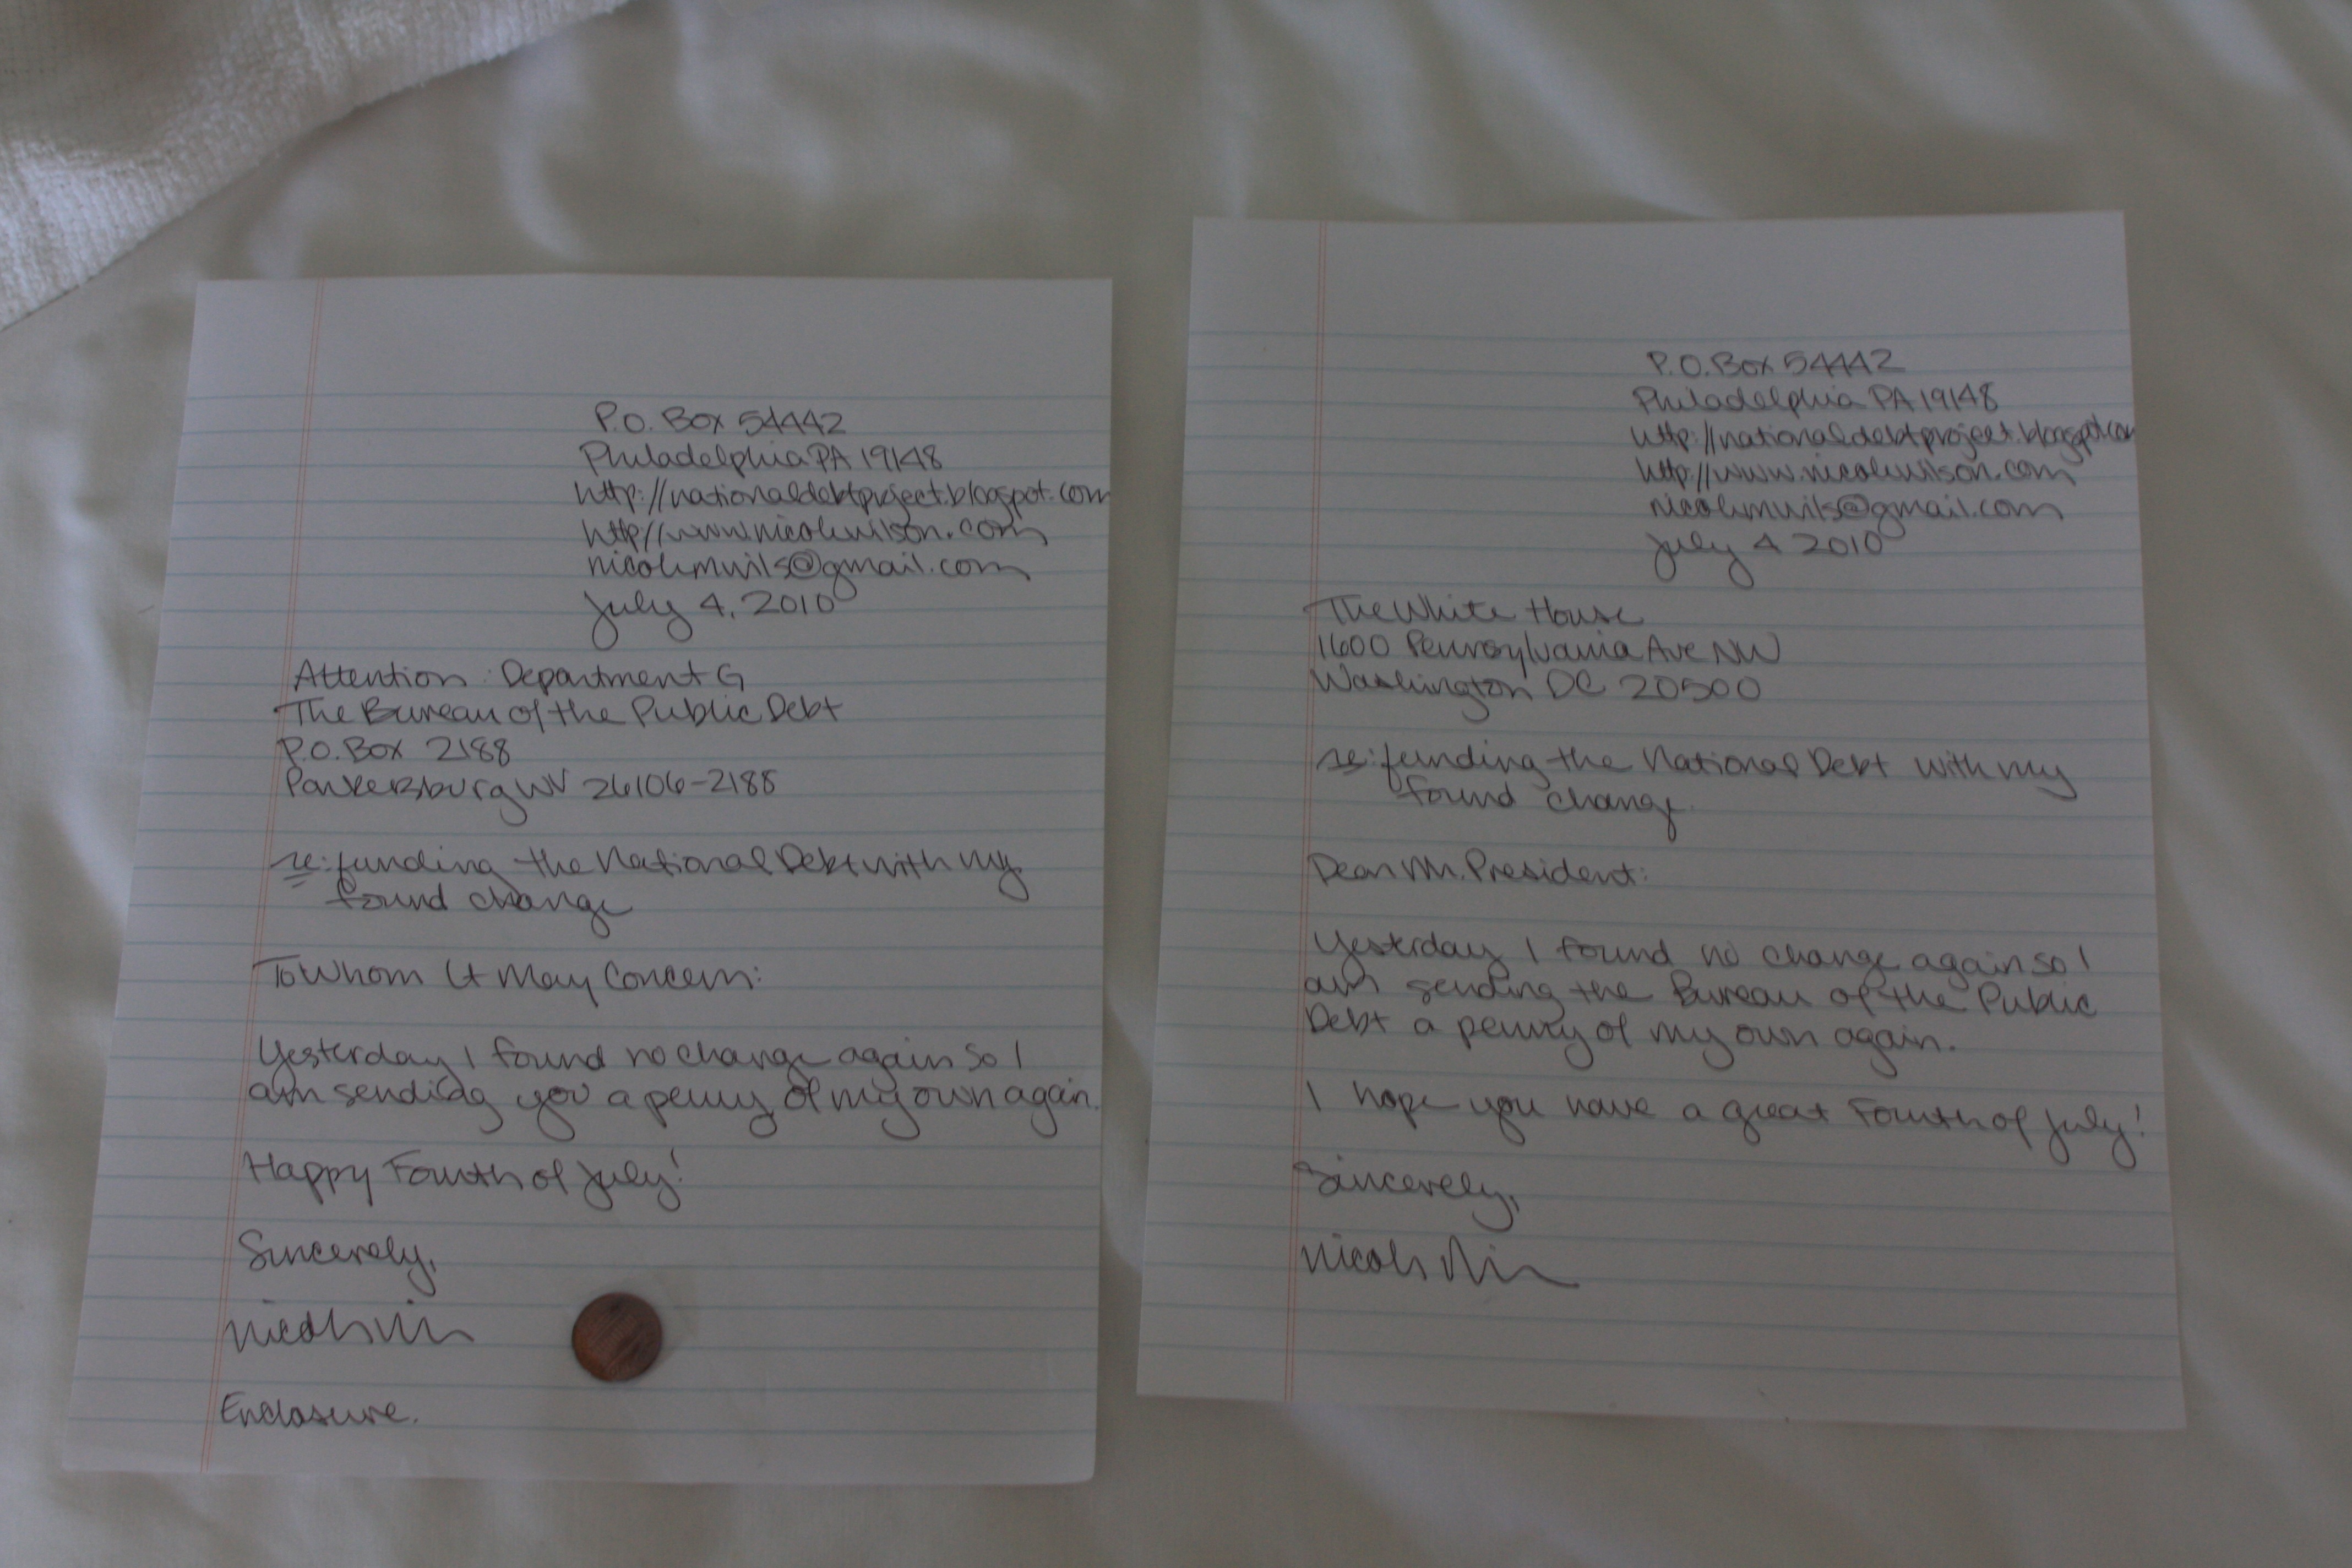 P.O. Box 54442
Philadelphia PA 19148
http://nationaldebtproject.blogspot.com
http://www.nicolewilson.com
nicolemwils@gmail.com
July 4, 2010
Attention: Department G
The Bureau of the Public Debt
P.O. Box 2188
Parkersburg WV 26106-2188
re: funding the National Debt with my
found change
To Whom It May Concern:
Yesterday I found no change again so I
am sending you a penny of my own again.
Happy Fourth of July!
Sincerely,
Enclosure.
P.O. Box 54442
Philadelphia PA 19148
http://nationaldebtproject.blogspot.com
http://www.nicolewilson.com
nicolemwils@gmail.com
July 4 2010
The White House
1600 Pennsylvania Ave NW
Washington DC 20500
re: funding the National Debt with my
found change.
Dear Mr. President:
Yesterday I found no change again so I
am sending the Bureau of the Public
Debt a penny of my own again.
I hope you have a great Fourth of July!
Sincerely,